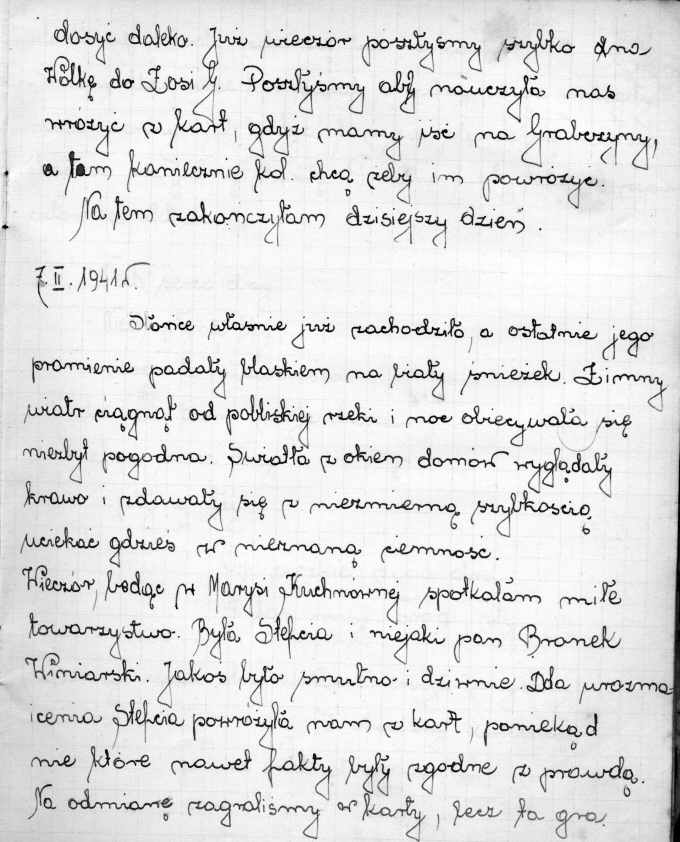 dosyć daleko. Już wieczór poszłyśmy szybko na
Wólkę do Zosi G. Poszłyśmy aby nauczyła nas
wróżyć z kart, gdyż mamy iść na Grabczyny,
a tam koniecznie kol. chcą żeby im powróżyć.
Na tem zakończyłam dzisiejszy dzień.
7.II.1941r.
Słońce właśnie już zachodziło, a ostatnie jego
promienie padały blaskiem na biały śnieżek. Zimny
wiatr ciągnął od pobliskiej rzeki i noc obiecywała się
niezbyt pogodna. Światła z okien domów wyglądały
krawo i zdawały się z niezmierną szybkością
uciekać gdzieś w nieznaną ciemność.
Wieczór, będąc w Marysi Kuchnównej spotkałam miłe
towarzystwo. Była Stefcia i niejaki pan Bronek
Winiarski. Jakoś było smutno i dziwnie. Dla urozma-
icenia Stefcia powróżyła nam z kart, poniekąd
nie które nawet fakty były zgodne z prawdą.
Na odmianę zagraliśmy w karty, lecz ta gra